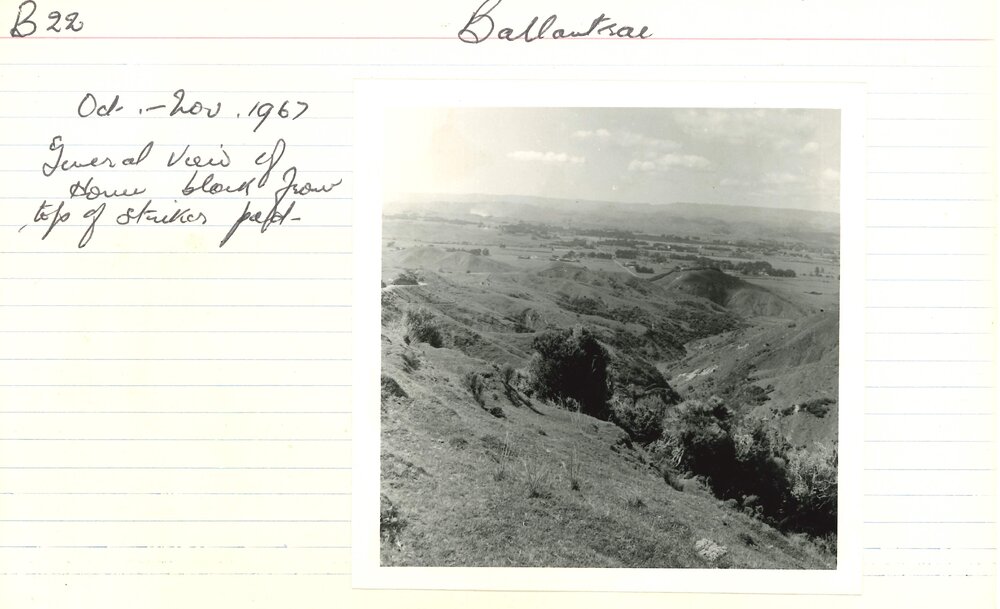 B22
Ballantrae
Oct.-Nov. 1967
General View of
Home block from
top of strikes padd-